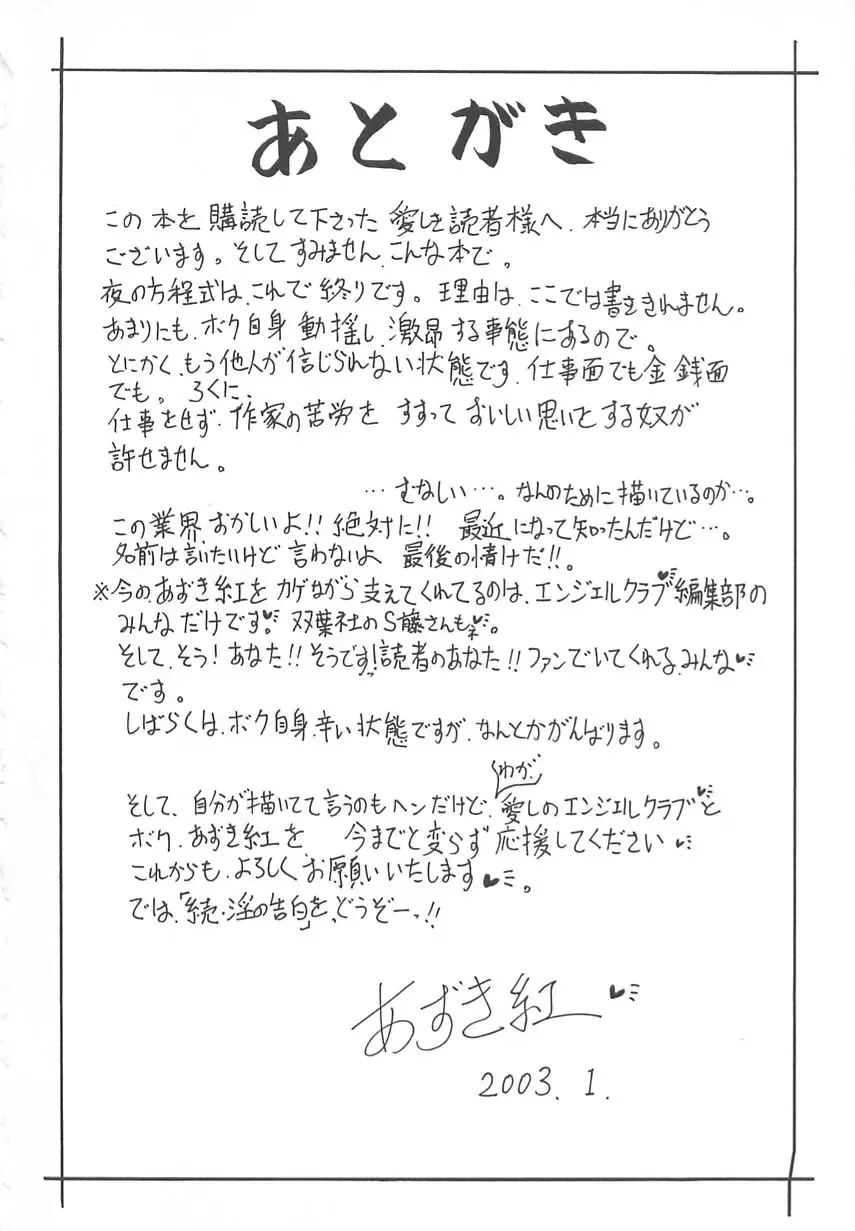 あとがき
この本を購読して下さった愛しき読者様へ、本当にありがとう
ございます。そしてすみません、こんな本で。
夜の方程式は、これで終りです。理由は、ここでは書ききれません。
あまりにも、ボク自身動揺し、激昂する事態にあるので。
とにかく、もう他人が信じられない状態です、仕事面でも金銭面
でも。ろくに、
仕事をせず、作家の苦労をすすっておいしい思いをする奴が
許せません。
…むなしい…。なんのために描いているのか…。
この業界、おかしいよ!!絶対に!!最近になって知ったんだけど…。
名前は言いたいけど言わないよ 最後の情けだ!!。
※今の、あずき紅をカゲながら支えてくれてるのは、エンジェルクラブ♥編集部の
みんなだけです♥。双葉社のS藤さんもネ♥。
そして、そう!あなた!!そうです!読者のあなた!!ファンでいてくれる、みんな♥
です。
しばらくは、ボク自身、辛い状態ですが、なんとかがんばります。
わが、
そして、自分が描いてて言うのもヘンだけど、愛しのエンジェルクラブ♥と
ボク、あずき紅を、今までと変らず応援してください♥
これからも、よろしくお願いいたします♥。
では、「続・淫の告白」を、どうぞーっ!!
あずき紅♥
2003.1.